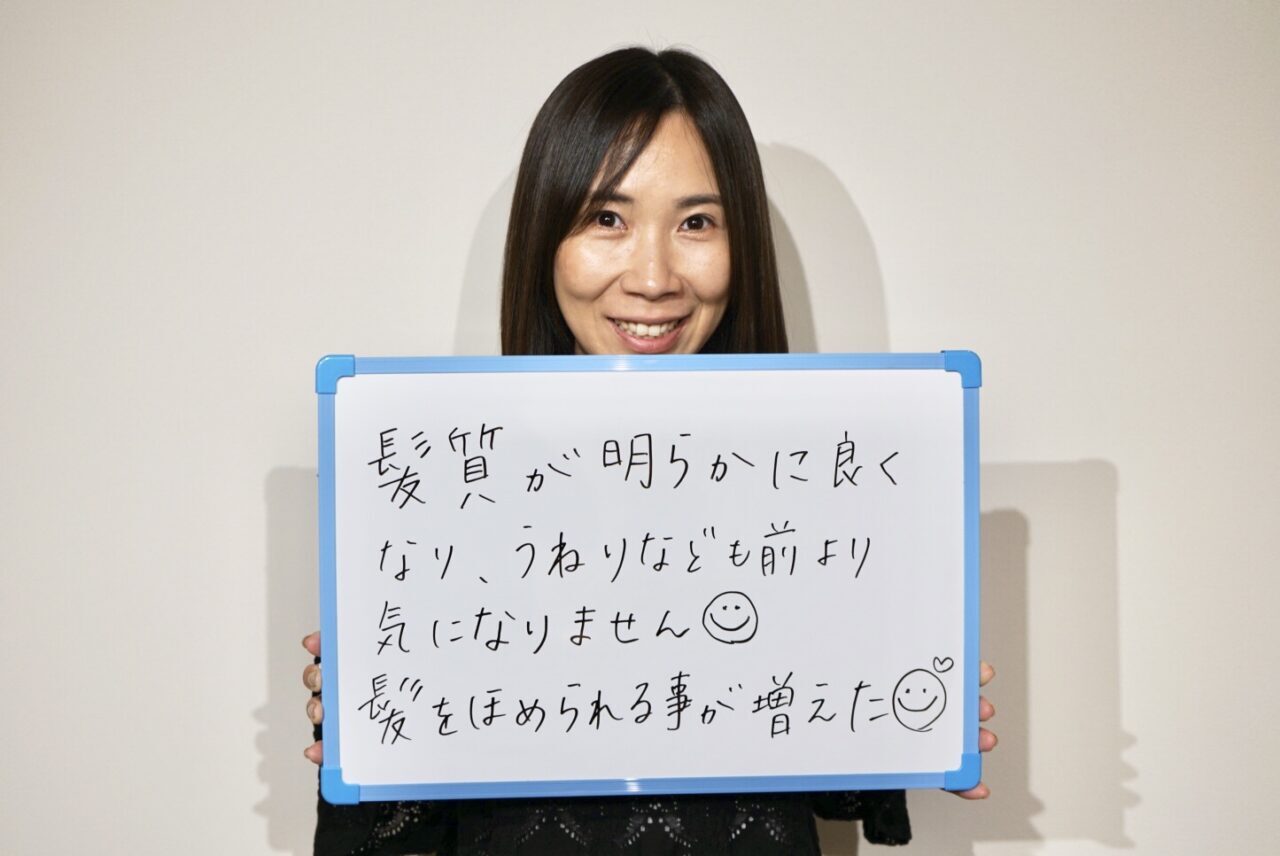 髪質が明らかに良く
なり、うねりなども前より
気になりません
髪をほめられる事が増えた